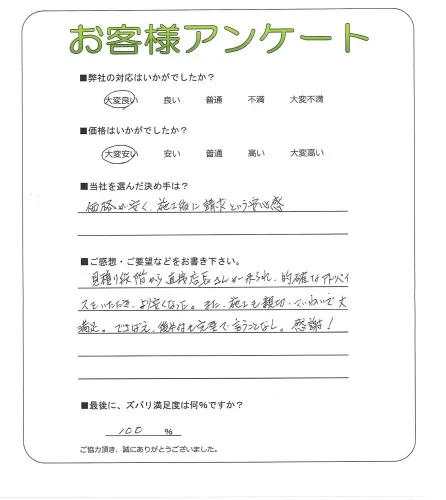 お客様アンケート
■弊社の対応はいかがでしたか？
大変良い 良い 普通 不満 大変不満
■価格はいかがでしたか？
大変安い 安い 普通 高い 大変高い
■当社を選んだ決め手は？
価格が安く、施工後に請求という安心感
■ご感想・ご要望などをお書き下さい。
見積り段階から直接店長さんが来られ、的確なアドバイ
スをいただき、より安くなった。また、施工も親切、ていねいで大
満足。できばえ、後片付も完璧で言うことなし。感謝！
■最後に、ズバリ満足度は何%ですか？
100 %
ご協力頂き、誠にありがとうございました。